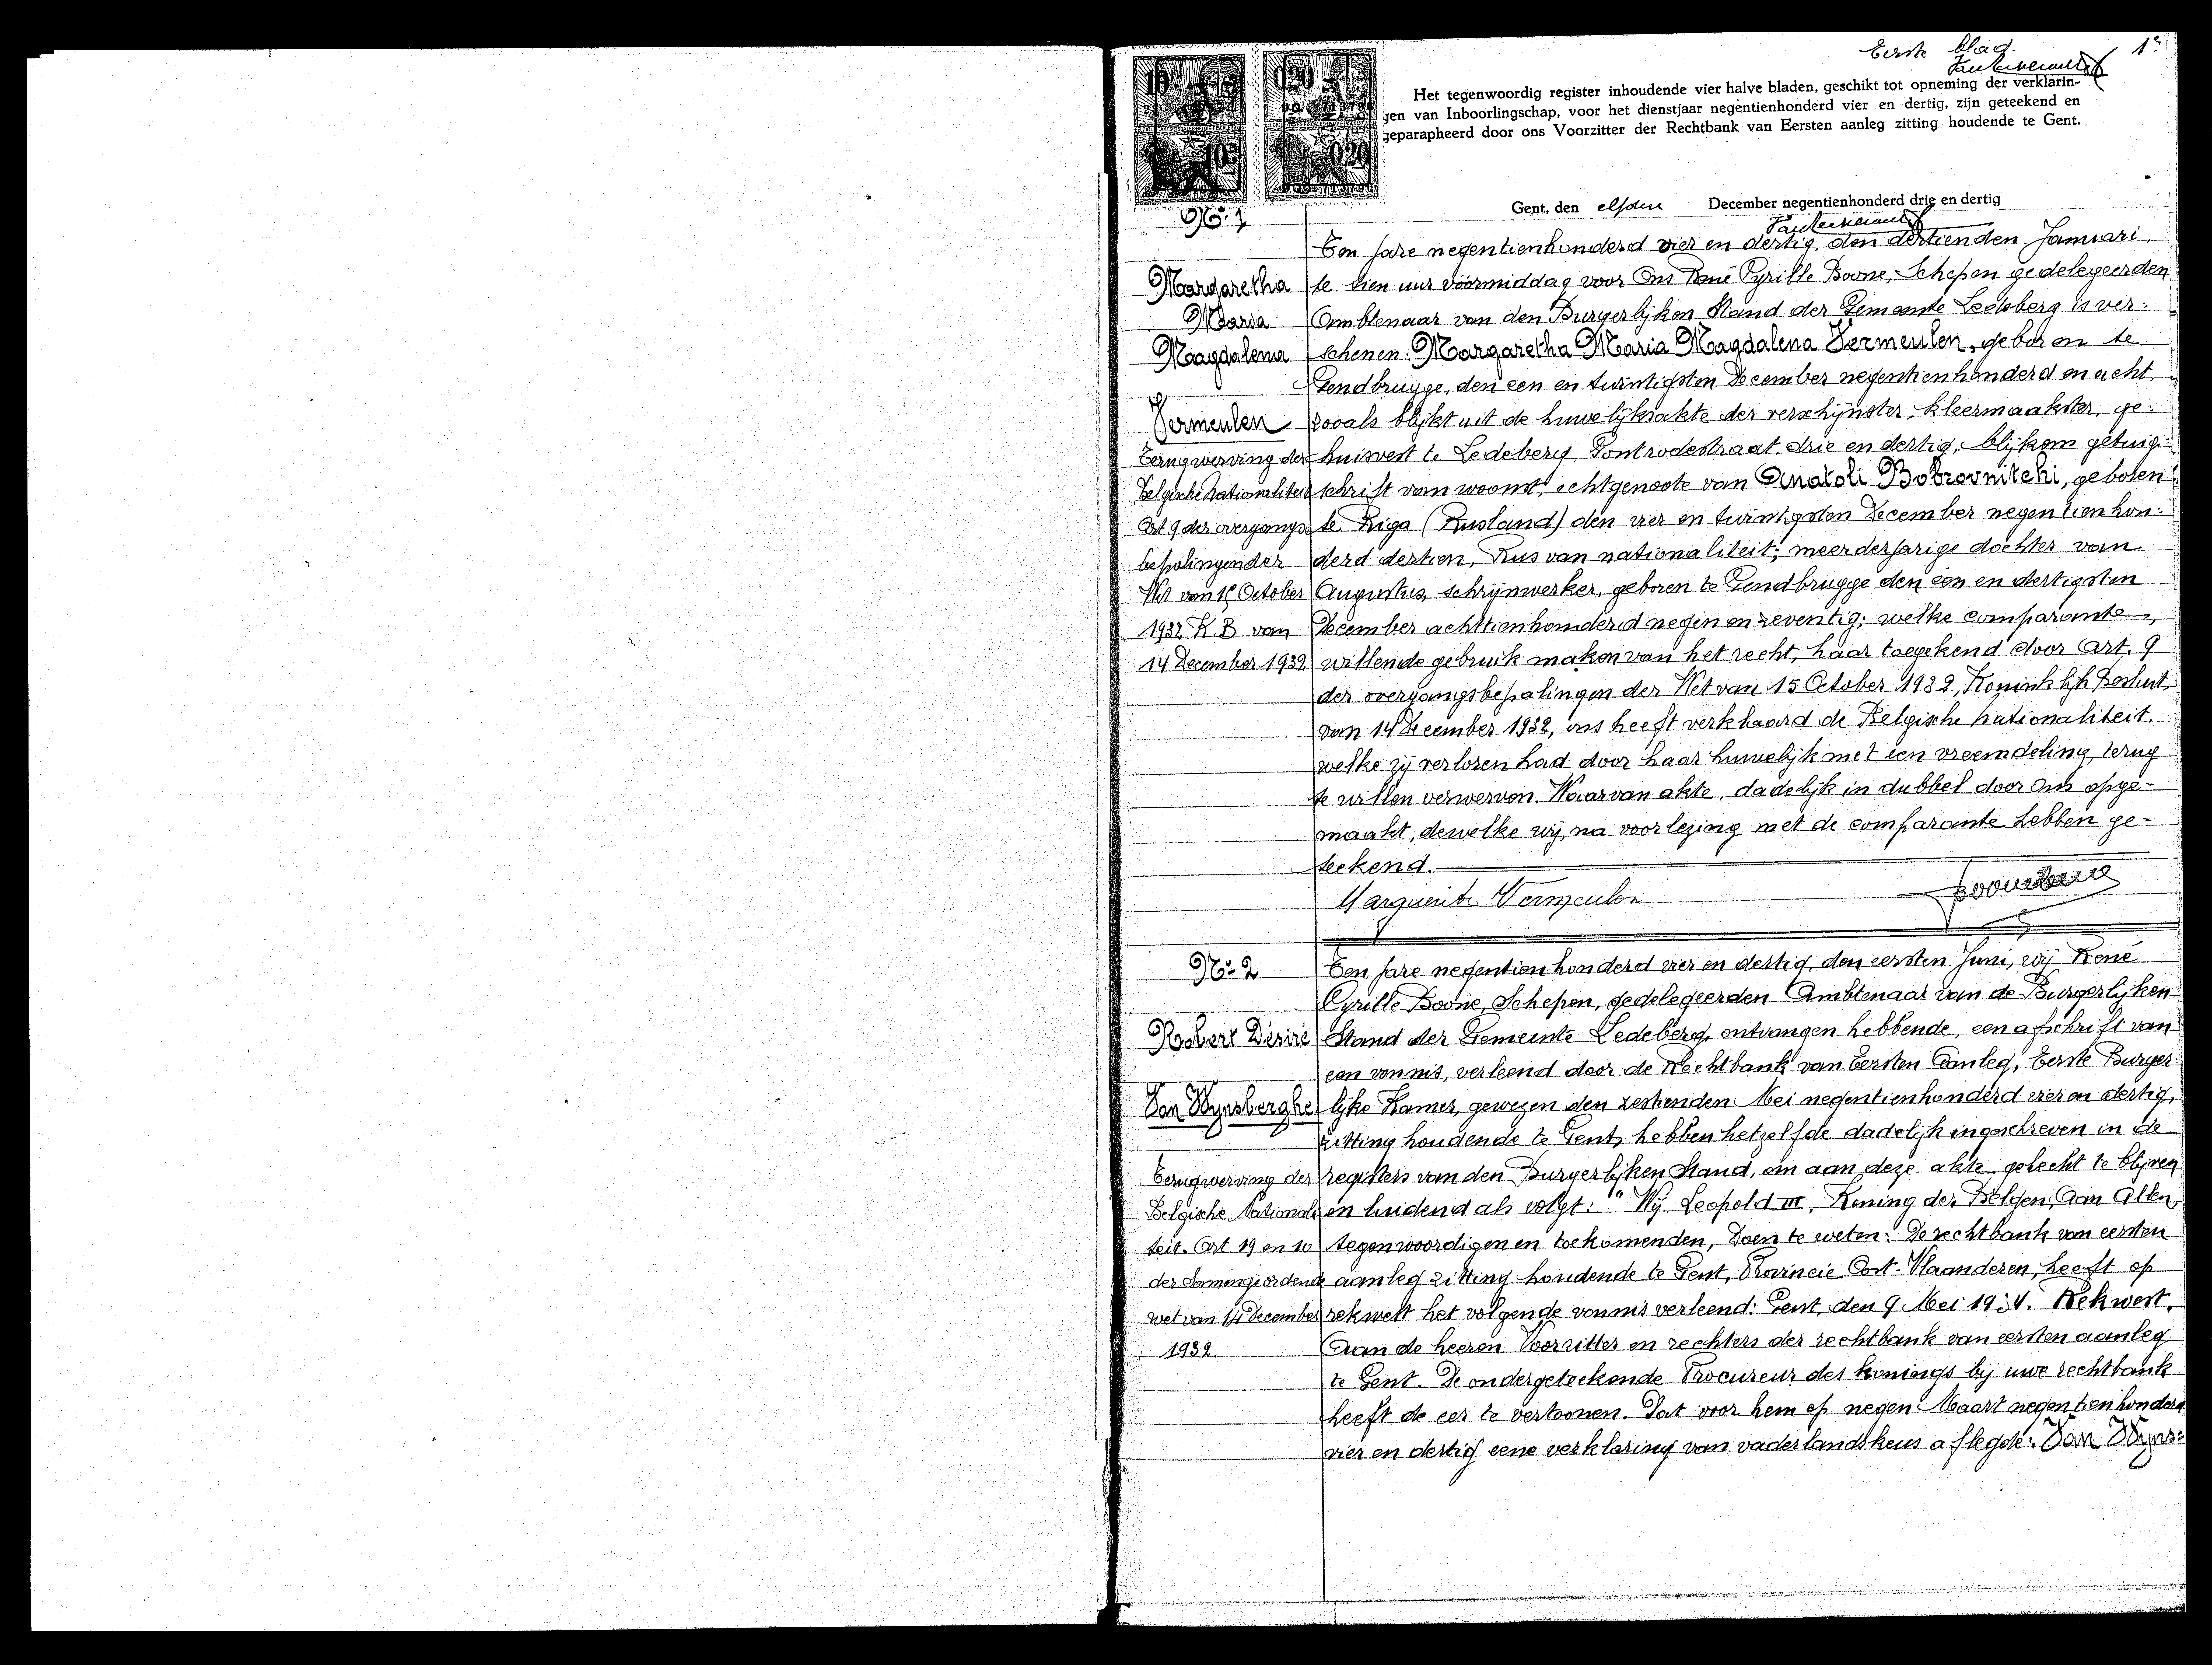 Eerste blad. 1e
Het tegenwoordig register inhoudende vier halve bladen, geschikt tot opneming der verklarin-
gen van Inboorlingschap, voor het dienstjaar negentienhonderd vier en dertig, zijn geteekend en
geparapheerd door ons Voorzitter der Rechtbank van Eersten aanleg zitting houdende te Gent.
Gent, den elfden December negentienhonderd drie en dertig
No 1
Margaretha
Maria
Magdalena
Vermeulen
Terugwerving der
Belgische nationaliteit
Art 9 der overgangs-
bepalingen der
Wet van 15 October
1932 K.B van
14 December 1932
Ten jare negentienhonderd vier en dertig, den dertienden Januari,
te tien uur vóórmiddag voor Ons René Cyrille Boone, Schepen gedelegeerden
Ambtenaar van den Burgerlijken Stand der Gemeente Ledeberg is ver:
schenen: Margaretha Maria Magdalena Vermeulen, geboren te
Gendbrugge, den een en twintigsten December negentienhonderd en acht,
zooals blijkt uit de huwelijksakte der verschijnster, kleermaakster, ge:
huisvest te Ledeberg, Gontrodestraat, drie en dertig, blijkens getuig:
schrift van woonst, echtgenoote van Anatoli Bobrovnitchi, geboren
te Riga (Rusland) den vier en twintigsten December negentienhon:
derd dertien, Rus van nationaliteit; meerderjarige dochter van
Augustus, schrijnwerker, geboren te Gendbrugge den een en dertigsten
December achttienhonderd negen en zeventig; welke comparante,
willende gebruik maken van het recht, haar toegekend door Art. 9
der overgangsbepalingen der Wet van 15 October 1932, Koninklijk Besluit
van 14 December 1932, ons heeft verklaard de Belgische nationaliteit,
welke zij verloren had door haar huwelijk met een vreemdeling, terug
te willen verwerven. Waarvan akte, dadelijk in dubbel door Ons opge-
maakt, dewelke wij, na voorlezing met de comparante hebben ge-
teekend.
Marguerite Vermeulen
No 2
Robert Désiré
Van Wynsberghe
Terugwerving der
Belgische Nationali
teit. Art 19 en 10
der Samengeordende
wet van 14 December
1932
Ten jare negentienhonderd vier en dertig, den eersten Juni, wij René
Cyrille Boone, Schepen, gedelegeerden Ambtenaar van de Burgerlijken
Stand der Gemeente Ledeberg, ontvangen hebbende, een afschrift van
een vonnis, verleend door de Rechtbank van Eersten Aanleg, Eerste Burger:
lijke Kamer, gewezen den zestienden Mei negentienhonderd vier en dertig,
zitting houdende te Gent, hebben hetzelfde dadelijk ingeschreven in de
registers van den Burgerlijken Stand, om aan deze akte gehecht te blijven
en luidend als volgt: " Wij Leopold III, Koning der Belgen, Aan Allen,
tegenwoordigen en toekomenden, Doen te weten: De rechtbank van eersten
aanleg zitting houdende te Gent, Provincie Oost-Vlaanderen, heeft op
rekwest het volgende vonnis verleend: Gent, den 9 Mei 1934. Rekwest.
Aan de heeren Voorzitter en rechters der rechtbank van eersten aanleg
te Gent. De ondergeteekende Procureur des konings bij uwe rechtbank
heeft de eer te vertoonen. Dat voor hem op negen Maart negentienhonderd
vier en dertig eene verklaring van vaderlandskeus aflegde: Van Wyns: